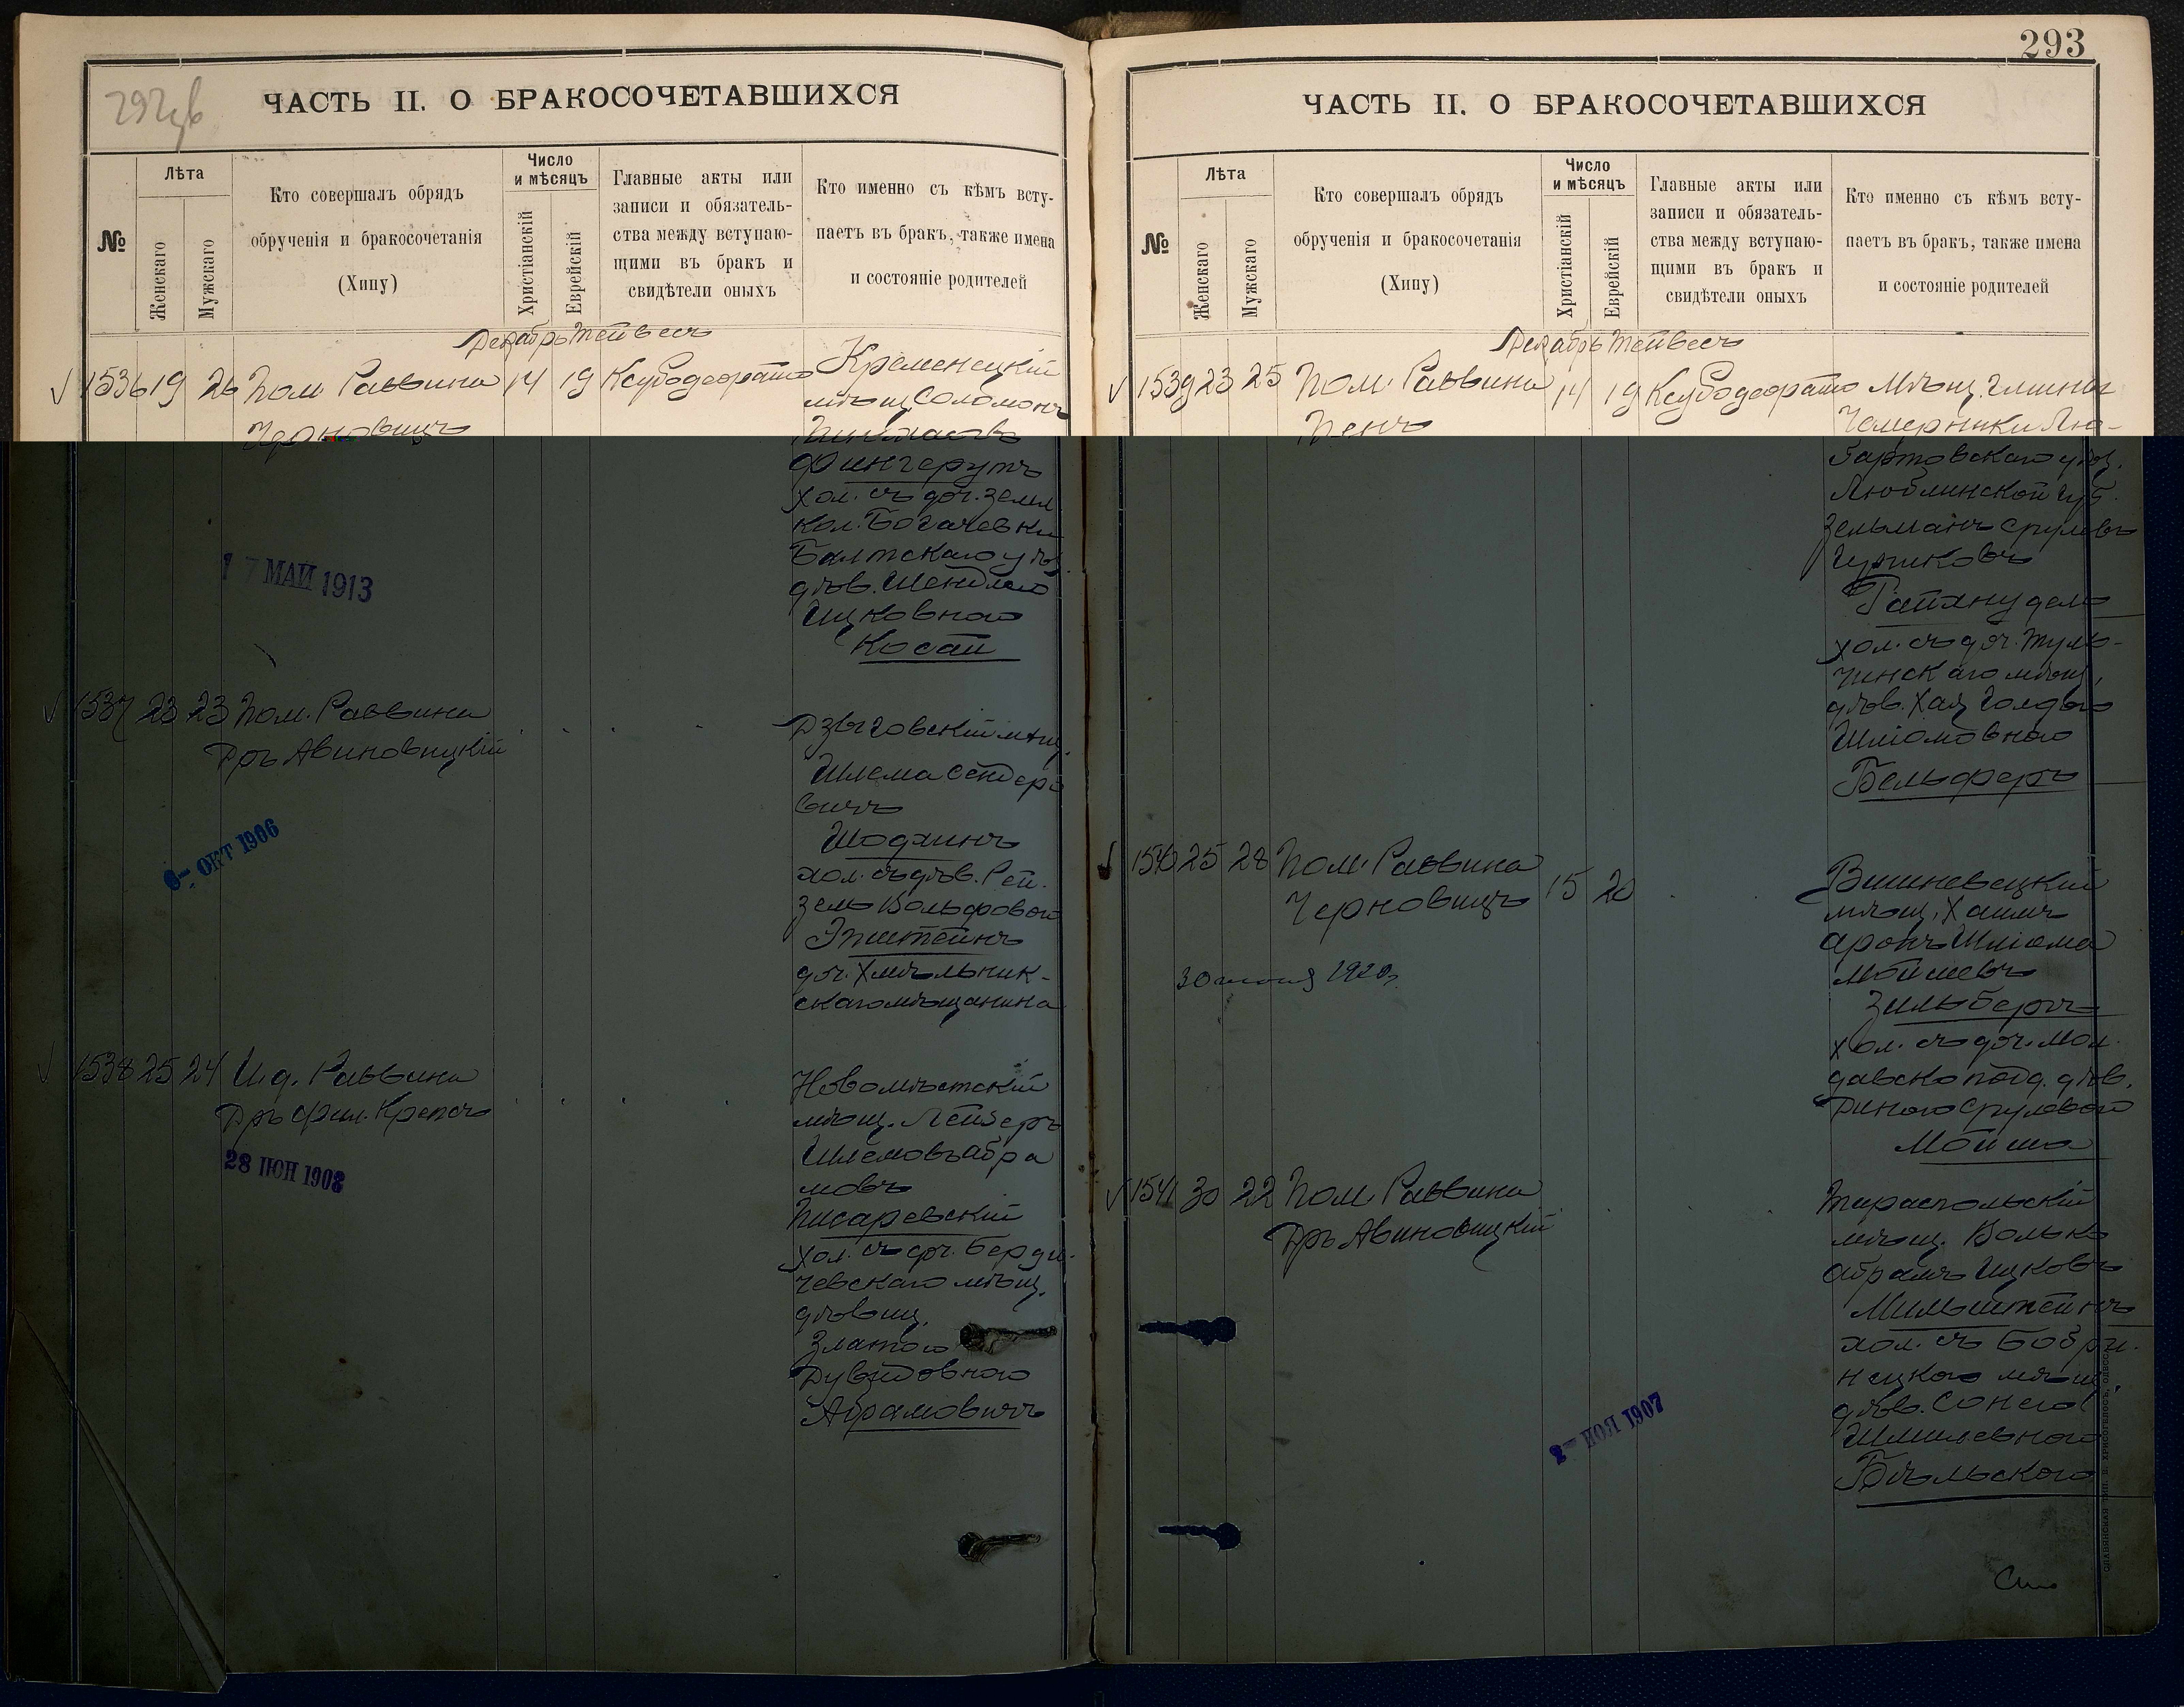 ЧАСТЬ II. О БРАКОСОЧЕТАВШИХСЯ
№
Лѣта
Женскаго
Мужскаго
Кто совершалъ обрядъ
обрученія и бракосочетанія
(Хипу)
Число
и мѣсяцъ
Христіанскій
Еврейскій
Главные акты или
записи и обязатель-
ства между вступаю-
щими въ бракъ и
свидѣтели оныхъ
Кто именно съ кѣмъ всту-
паетъ въ бракъ, также имена
и состояніе родителей
Декабрь Тейвесъ
1536 19 26 Пом. Раввина 14 19
Черновицъ
Кременецкій
мѣщ. Соломонъ
Фингерутъ
хол. съ доч. земл.
кол. Богачевки
Балтскаго уѣз.
дѣв. Шейндлею
Ицковною
Косой
17 МАЙ 1913
1537 23 23 Пом. Раввина
Дръ Авиновицкій
Дзыговскій мѣщ.
Шлема Сендеро
вичъ
Шодхинъ
хол. съ дѣв. Рей
зель Вольфовою
Эпштейнъ
доч. Хмѣльник-
скаго мѣщанина
6- ОКТ 1906
1538 25 24 И.д. Раввина
Дръ Фил. Крепсъ
Новомѣстскій
мѣщ. Лейзеръ
Шлемовъ Абра
мовъ
Писаревскій
хол. съ доч. Берди-
чевскаго мѣщ.
дѣвиц.
Златою
Дувидовною
Абрамовичъ
28 ІЮН 1908
293
ЧАСТЬ II. О БРАКОСОЧЕТАВШИХСЯ
№
Лѣта
Женскаго
Мужскаго
Кто совершалъ обрядъ
обрученія и бракосочетанія
(Хипу)
Число
и мѣсяцъ
Христіанскій
Еврейскій
Главные акты или
записи и обязатель-
ства между вступаю-
щими въ бракъ и
свидѣтели оныхъ
Кто именно съ кѣмъ всту-
паетъ въ бракъ, также имена
и состояніе родителей
Декабрь Тейвесъ
1539 23 25 Пом. Раввина 14 19
Пенъ
Мѣщ. гмины
Чемерники Лю-
бартовскаго уѣз.
Люблинской губ.
Зельманъ Срулевъ
хол. съ доч. Туль-
чинскаго мѣщ.
дѣв. Хая Голдою
Шліомовною
Бельферъ
1540 25 28 Пом. Раввина
Черновицъ 15 20
Вишневецкій
мѣщ. Хаимъ
Аронъ Шліома
Мойшевъ
Зильбергъ
хол. съ доч. мол
давско под. дѣв.
Диною Срулевою
Мойша
1541 30 22 Пом. Раввина
Дръ Авиновицкій
Тираспольскій
мѣщ. Волько
Абрамъ Ицковъ
Мильштейнъ
хол. съ Бобри-
нецкою мѣщ.
дѣв. Сонею
Шмилевною
Бѣльскою
2- НОЯ 1907
СЛАВЯНСКАЯ ТИП. Н. ХРИСОГЕЛОСЪ, ОДЕССА